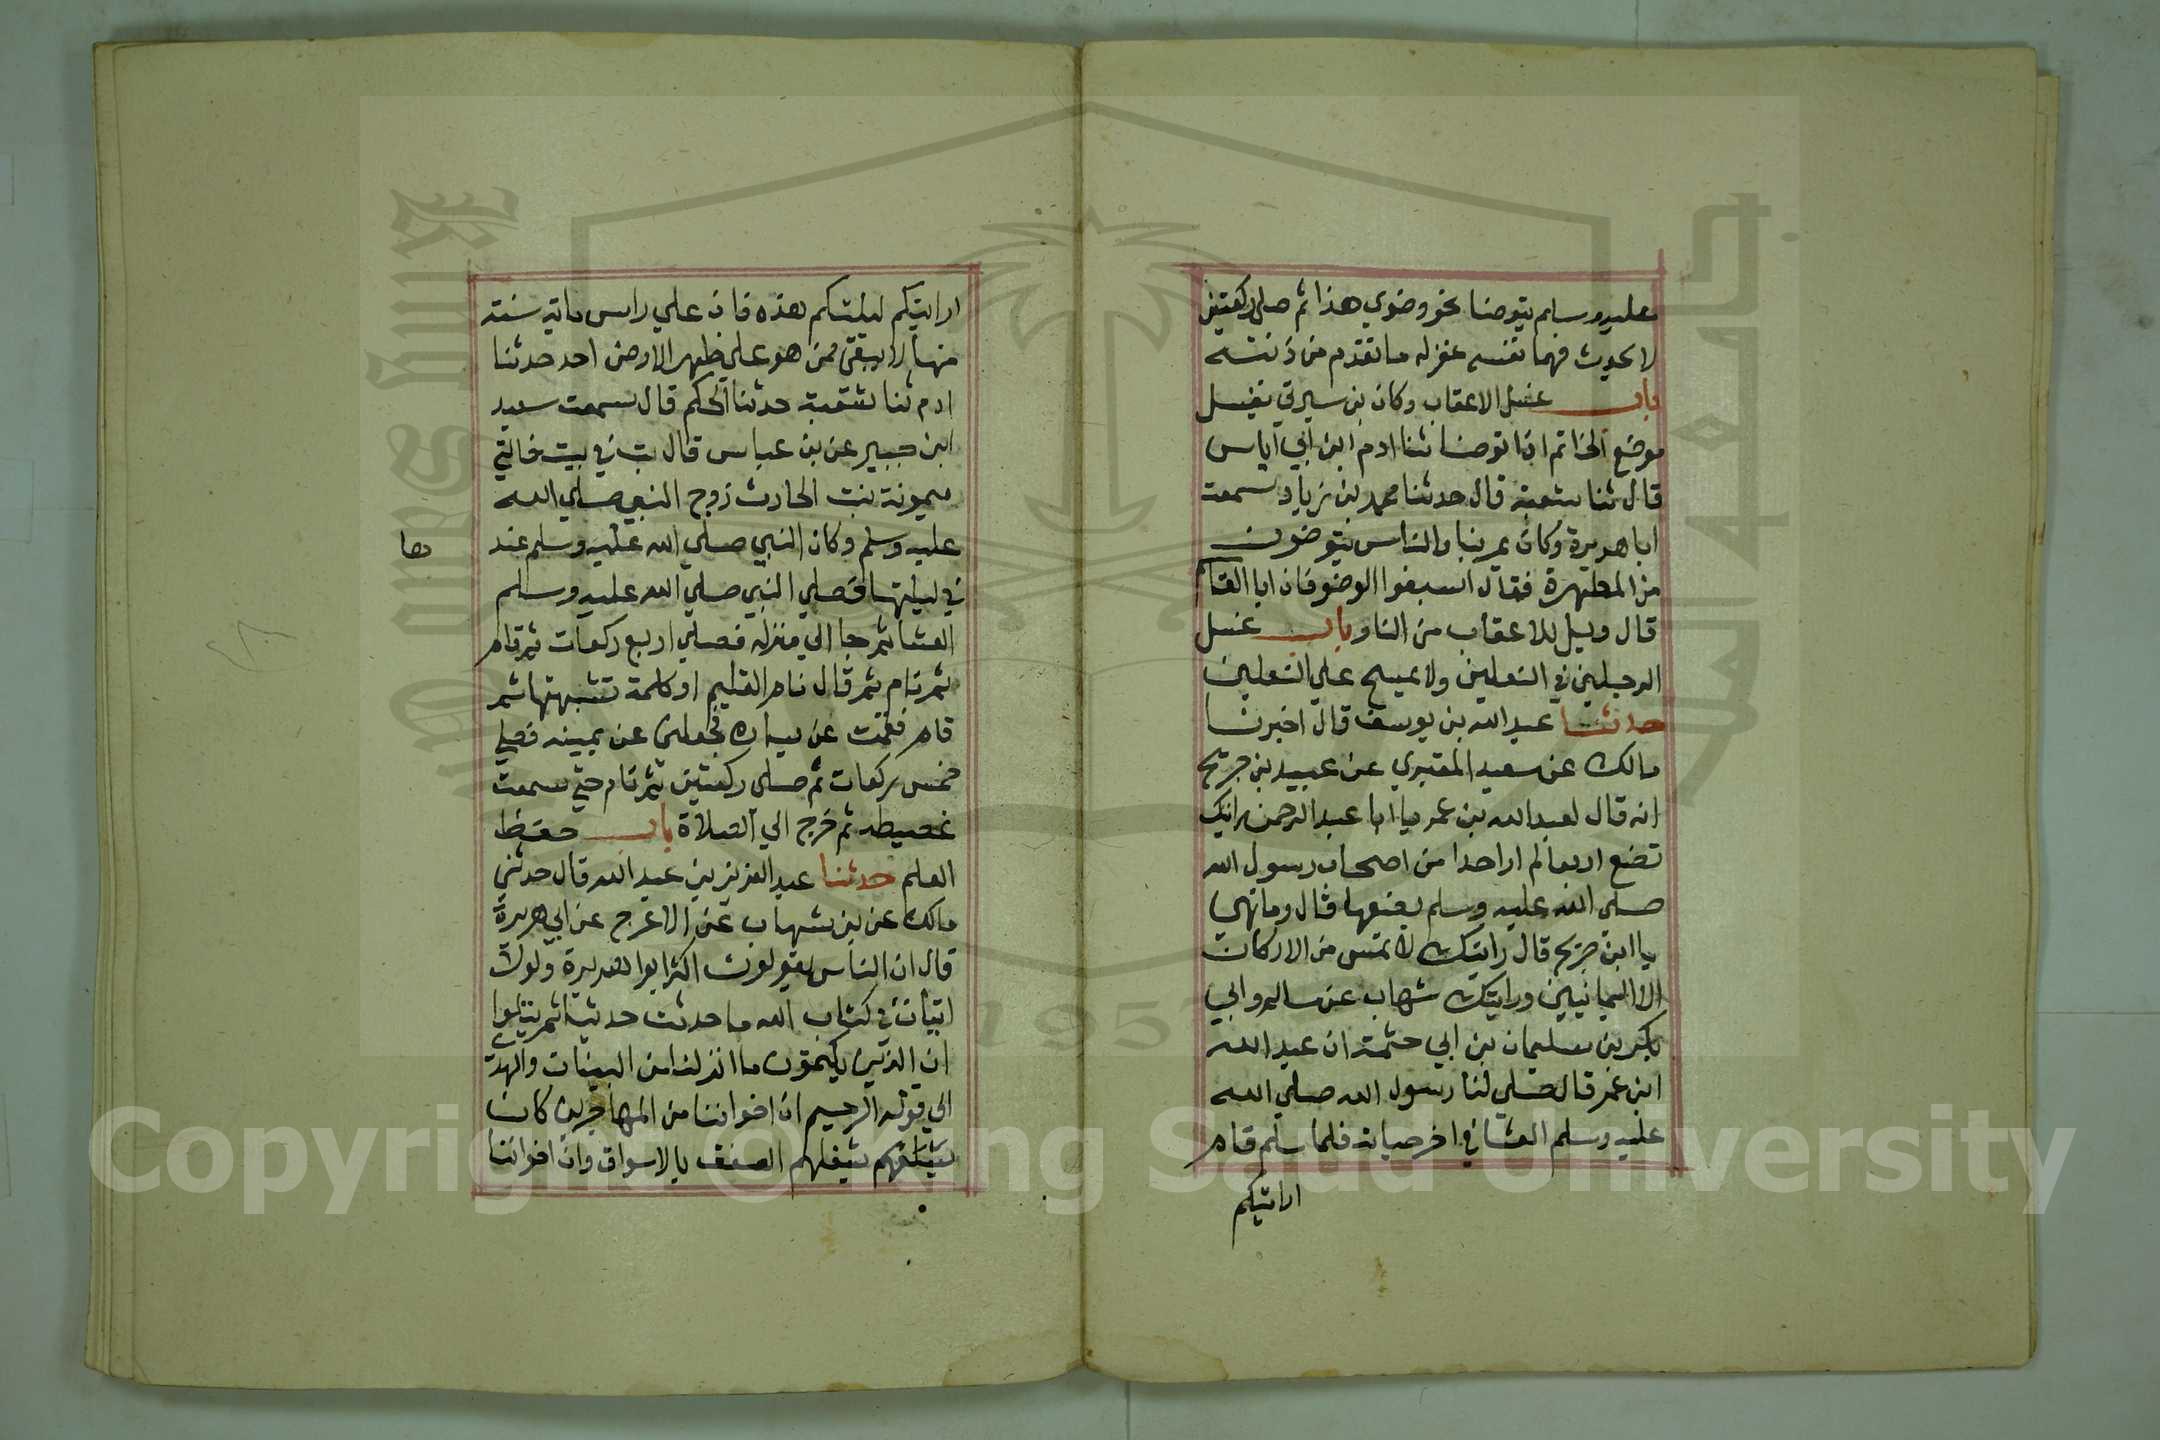 عليه وسلم يتوضا نحو وضوي هذا ثم صلى ركعتين
لا يحدث فيهما نفسه غفر له ما تقدم من ذنبه
باب غسل الاعقاب وكان بن سيرين يغسل
موضع الخاتم اذا توضا ثنا ادم ابن ابي اياس
قال ثنا شعبة قال حدثنا محمد بن زياد سمعت
ابا هريرة وكان يمر بنا والناس يتوضون
من المطهرة فقال اسبغوا الوضو فان ابا القاسم
قال ويل للاعقاب من النار باب غسل
الرجلين في النعلين ولا يمسح علي النعلين
حدثنا عبد الله بن يوسف قال اخبرنا
مالك عن سعيد المقبري عن عبيد بن جريج
انه قال لعبد الله بن عمر يا ابا عبد الرحمن رايتك
تضع اربعا لم ار احدا من اصحاب رسول الله
صلى الله عليه وسلم يضعها قال وما هي
يا ابن جريج قال رايتك لا تمس من الاركان
الا اليمانيين ورايتك شهاب عن سالم وابي
بكر بن سليمان بن ابي حثمة ان عبد الله
ابن عمر قال صلي لنا رسول الله صلي الله
عليه وسلم العشا في اخر حياته فلما سلم قام
ارايتكم
ارايتكم ليلتكم هذه فان علي راس ماية سنة
منها لا يبقى ممن هو علي ظهر الارض احد حدثنا
ادم ثنا شعبة حدثنا الحكم قال سمعت سعيد
ابن جبير عن بن عباس قال بت في بيت خالتي
ميمونة بنت الحارث زوج النبي صلي الله
عليه وسلم وكان النبي صلي الله عليه وسلم عند
ها
في ليلتها فصلي النبي صلي الله عليه وسلم
العشا ثم جا الي منزله فصلي اربع ركعات ثم قام
ثم نام ثم قال نام الغليم او كلمة تشبهها ثم
قام فقمت عن يساره فجعلني عن يمينه فصلي
خمس ركعات ثم صلى ركعتين ثم نام حتي سمعت
غطيطه ثم خرج الي الصلاة باب حفظ
العلم حدثنا عبد العزيز بن عبد الله قال حدثني
مالك عن بن شهاب عن الاعرج عن ابي هريرة
قال ان الناس يقولون اكثر ابو هريرة ولولا
ايتان في كتاب الله ما حدثت حديثا ثم يتلوا
ان الذين يكتمون ما انزلنا من البينات والهدي
الي قوله الرحيم ان اخواننا من المهاجرين كان
يشغلهم الصفق بالاسواق وان اخواننا
Copyright © King Saud University
King Saud University
1957